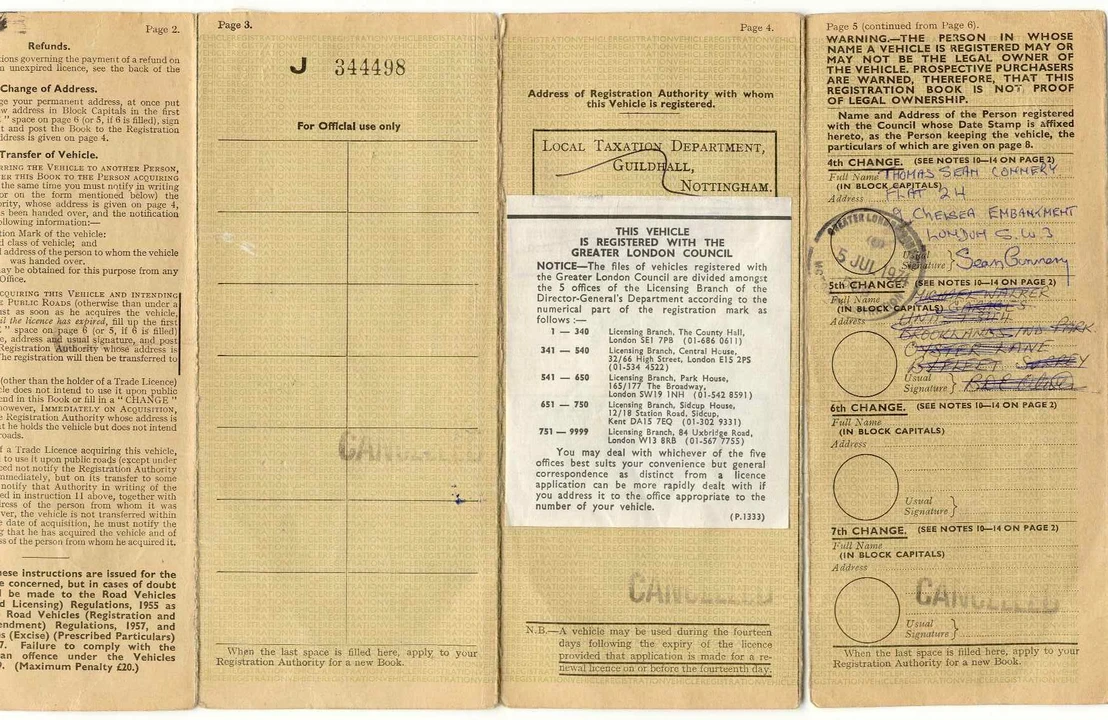 Page 2.
Refunds.
ions governing the payment of a refund on
n unexpired licence, see the back of the
Change of Address.
ge your permanent address, at once put
w address in Block Capitals in the first
" space on page 6 (or 5, if 6 is filled), sign
t and post the Book to the Registration
ddress is given on page 4.
Transfer of Vehicle.
RRING THE VEHICLE TO ANOTHER PERSON,
ER THIS BOOK TO THE PERSON ACQUIRING
the same time you must notify in writing
or on the form mentioned below) the
ority, whose address is given on page 4,
as been handed over, and the notification
ollowing information:—
tion Mark of the vehicle:
d class of vehicle; and
l address of the person to whom the vehicle
was handed over.
may be obtained for this purpose from any
Office.
CQUIRING THIS VEHICLE AND INTENDING
E PUBLIC ROADS (otherwise than under a
ust as soon as he acquires the vehicle,
il the licence has expired, fill up the first
" space on page 6 (or 5, if 6 is filled)
e, address and usual signature, and post
Registration Authority whose address is
The registration will then be transferred to
(other than the holder of a Trade Licence)
cle does not intend to use it upon public
end in this Book or fill in a "CHANGE"
however, IMMEDIATELY ON ACQUISITION,
e Registration Authority whose address is
t he holds the vehicle but does not intend
roads.
f a Trade Licence acquiring this vehicle,
to use it upon public roads (except under
eed not notify the Registration Authority
mmediately, but on its transfer to some
notify that Authority in writing of the
ed in instruction 11 above, together with
dress of the person from whom it was
ver, the vehicle is not transferred within
e date of acquisition, he must notify the
g that he has acquired the vehicle and of
ss of the person from whom he acquired it.
hese instructions are issued for the
e concerned, but in cases of doubt
l be made to the Road Vehicles
d Licensing) Regulations, 1955 as
Road Vehicles (Registration and
endment) Regulations, 1957, and
s (Excise) (Prescribed Particulars)
7. Failure to comply with the
an offence under the Vehicles
9. (Maximum Penalty £20.)
Page 3.
J 344498
For Official use only
CANCELLED
When the last space is filled here, apply to your
Registration Authority for a new Book.
Page 4.
Address of Registration Authority with whom
this Vehicle is registered.
LOCAL TAXATION DEPARTMENT,
GUILDHALL,
NOTTINGHAM.
THIS VEHICLE
IS REGISTERED WITH THE
GREATER LONDON COUNCIL
NOTICE—The files of vehicles registered with
the Greater London Council are divided amongst
the 5 offices of the Licensing Branch of the
Director-General's Department according to the
numerical part of the registration mark as
follows :—
1 — 340 Licensing Branch, The County Hall,
London SE1 7PB (01-686 0611)
341 — 540 Licensing Branch, Central House,
32/66 High Street, London E15 2PS
(01-534 4522)
541 — 650 Licensing Branch, Park House,
165/177 The Broadway,
London SW19 1NH (01-542 8591)
651 — 750 Licensing Branch, Sidcup House,
12/18 Station Road, Sidcup,
Kent DA15 7EQ (01-302 9331)
751 — 9999 Licensing Branch, 84 Uxbridge Road,
London W13 8RB (01-567 7755)
You may deal with whichever of the five
offices best suits your convenience but general
correspondence as distinct from a licence
application can be more rapidly dealt with if
you address it to the office appropriate to the
number of your vehicle.
(P.1333)
CANCELLED
N.B.—A vehicle may be used during the fourteen
days following the expiry of the licence
provided that application is made for a re-
newal licence on or before the fourteenth day.
Page 5 (continued from Page 6).
WARNING.—THE PERSON IN WHOSE
NAME A VEHICLE IS REGISTERED MAY OR
MAY NOT BE THE LEGAL OWNER OF
THE VEHICLE. PROSPECTIVE PURCHASERS
ARE WARNED, THEREFORE, THAT THIS
REGISTRATION BOOK IS NOT PROOF
OF LEGAL OWNERSHIP.
Name and Address of the Person registered
with the Council whose Date Stamp is affixed
hereto, as the Person keeping the vehicle, the
particulars of which are given on page 8.
4th CHANGE. (SEE NOTES 10—14 ON PAGE 2)
Full Name THOMAS SEAN CONNERY
(IN BLOCK CAPITALS)
Address FLAT 24
9 CHELSEA EMBANKMENT
LONDON S.W 3
GREATER LONDON
5 JUL 1971
Usual
Signature } Sean Connery
5th CHANGE. (SEE NOTES 10—14 ON PAGE 2)
Full Name MICHAEL WALKER
(IN BLOCK CAPITALS)
Address
BROOKLANDS IND PARK
OYSTER LANE
BYFLEET SURREY
Usual
Signature }
6th CHANGE. (SEE NOTES 10—14 ON PAGE 2)
Full Name
(IN BLOCK CAPITALS)
Address
Usual
Signature }
7th CHANGE. (SEE NOTES 10—14 ON PAGE 2)
Full Name
(IN BLOCK CAPITALS)
Address
CANCELLED
Usual
Signature }
When the last space is filled here, apply to your
Registration Authority for a new Book.